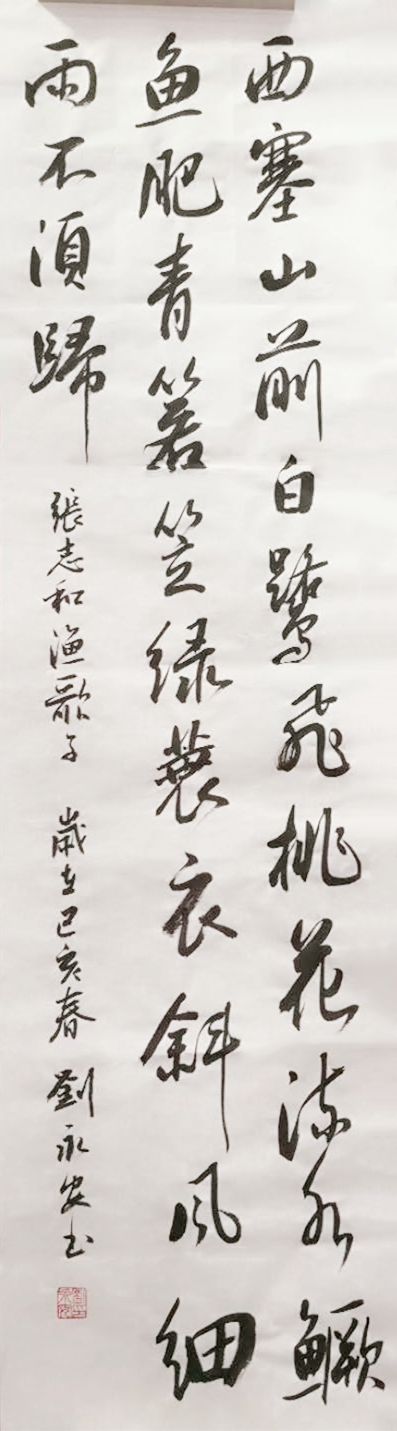 西塞山前白鹭飞桃花流水鳜
鱼肥青箬笠绿蓑衣斜风细
雨不須歸
張志和渔歌子 歲在己亥春 劉永安书